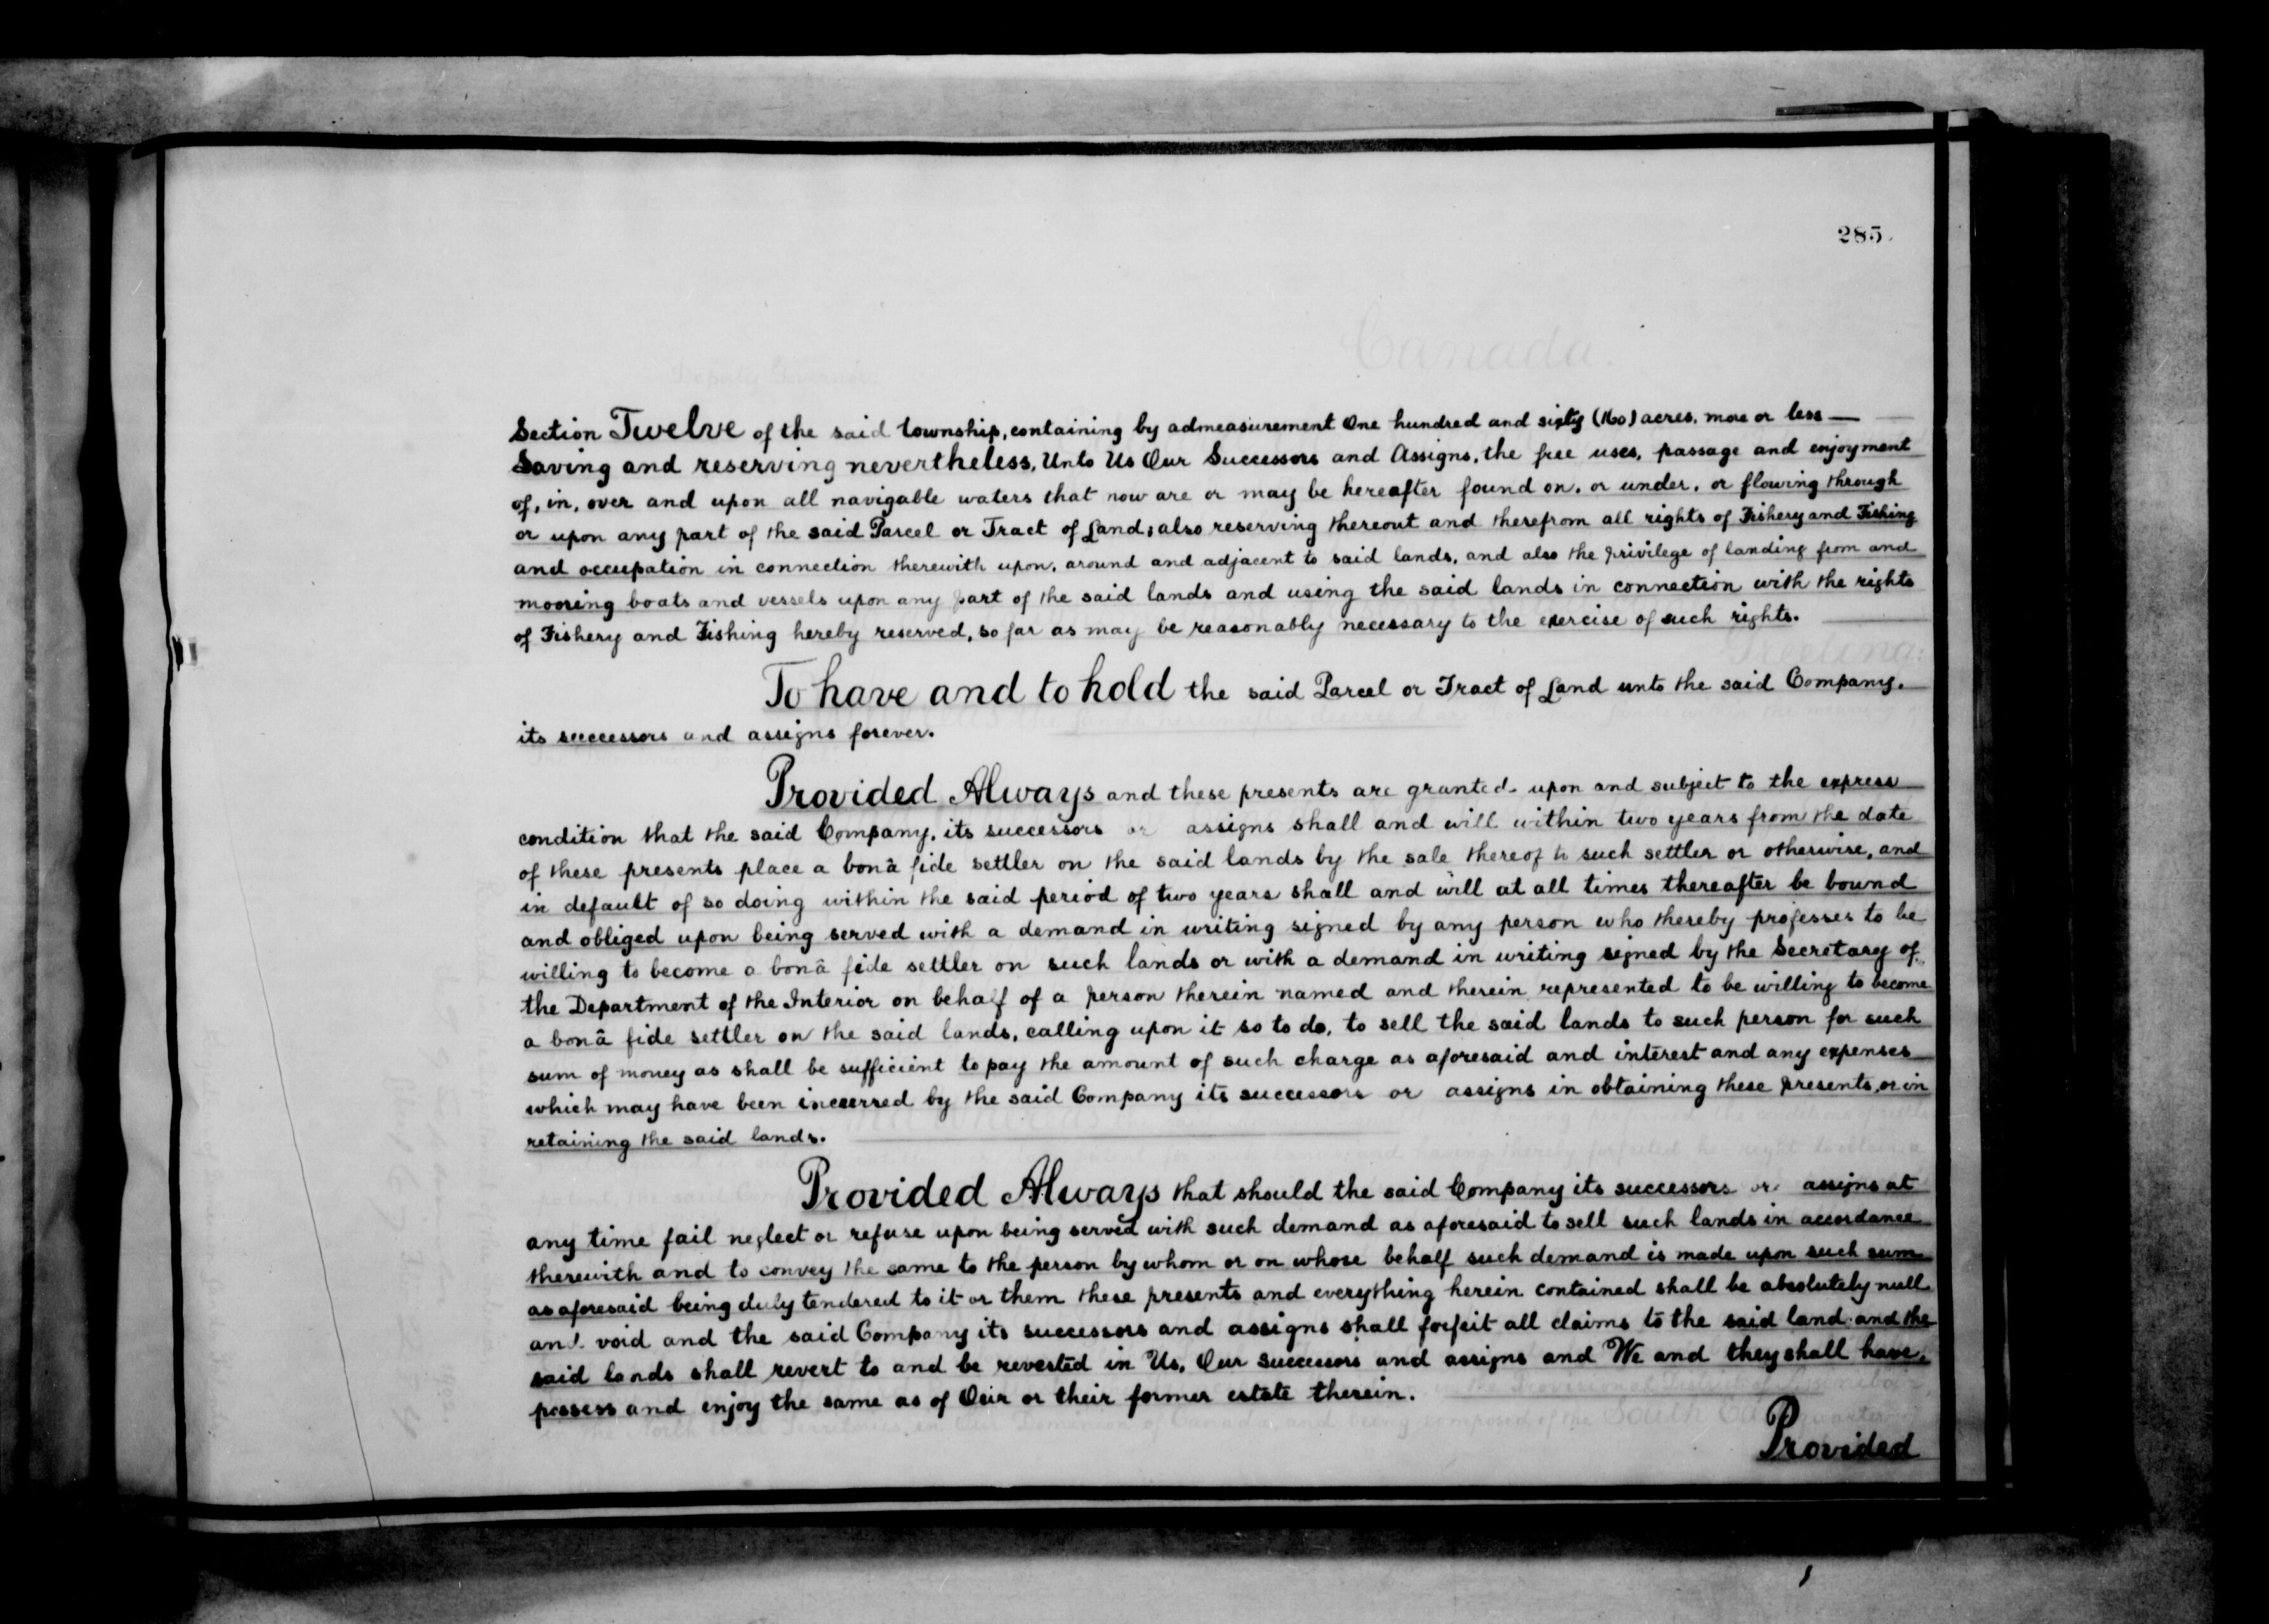 285.
Canada.
Section Twelve of the said township, containing by admeasurement One hundred and sixty (160) acres, more or less —
Saving and reserving nevertheless, Unto Us Our Successors and Assigns, the free uses, passage and enjoyment
of, in, over and upon all navigable waters that now are or may be hereafter found on, or under, or flowing through
or upon any part of the said Parcel or Tract of Land; also reserving thereout and therefrom all rights of Fishery and Fishing
and occupation in connection therewith upon, around and adjacent to said lands, and also the privilege of landing from and
mooring boats and vessels upon any part of the said lands and using the said lands in connection with the rights
of Fishery and Fishing hereby reserved, so far as may be reasonably necessary to the exercise of such rights.
To have and to hold the said Parcel or Tract of Land unto the said Company,
its successors and assigns forever.
Provided Always and these presents are granted upon and subject to the express
condition that the said Company, its successors or assigns shall and will within two years from the date
of these presents place a bonâ fide settler on the said lands by the sale thereof to such settler or otherwise, and
in default of so doing within the said period of two years shall and will at all times thereafter be bound
and obliged upon being served with a demand in writing signed by any person who thereby professes to be
willing to become a bonâ fide settler on such lands or with a demand in writing signed by the Secretary of
the Department of the Interior on behalf of a person therein named and therein represented to be willing to become
a bonâ fide settler on the said lands, calling upon it so to do, to sell the said lands to such person for such
sum of money as shall be sufficient to pay the amount of such charge as aforesaid and interest and any expenses
which may have been incurred by the said Company its successors or assigns in obtaining these presents, or in
retaining the said lands.
Provided Always that should the said Company its successors or assigns at
any time fail neglect or refuse upon being served with such demand as aforesaid to sell such lands in accordance
therewith and to convey the same to the person by whom or on whose behalf such demand is made upon such sum
as aforesaid being duly tendered to it or them these presents and everything herein contained shall be absolutely null
and void and the said Company its successors and assigns shall forfeit all claims to the said land and the
said lands shall revert to and be revested in Us, Our successors and assigns and We and they shall have,
possess and enjoy the same as of Our or their former estate therein.
Provided